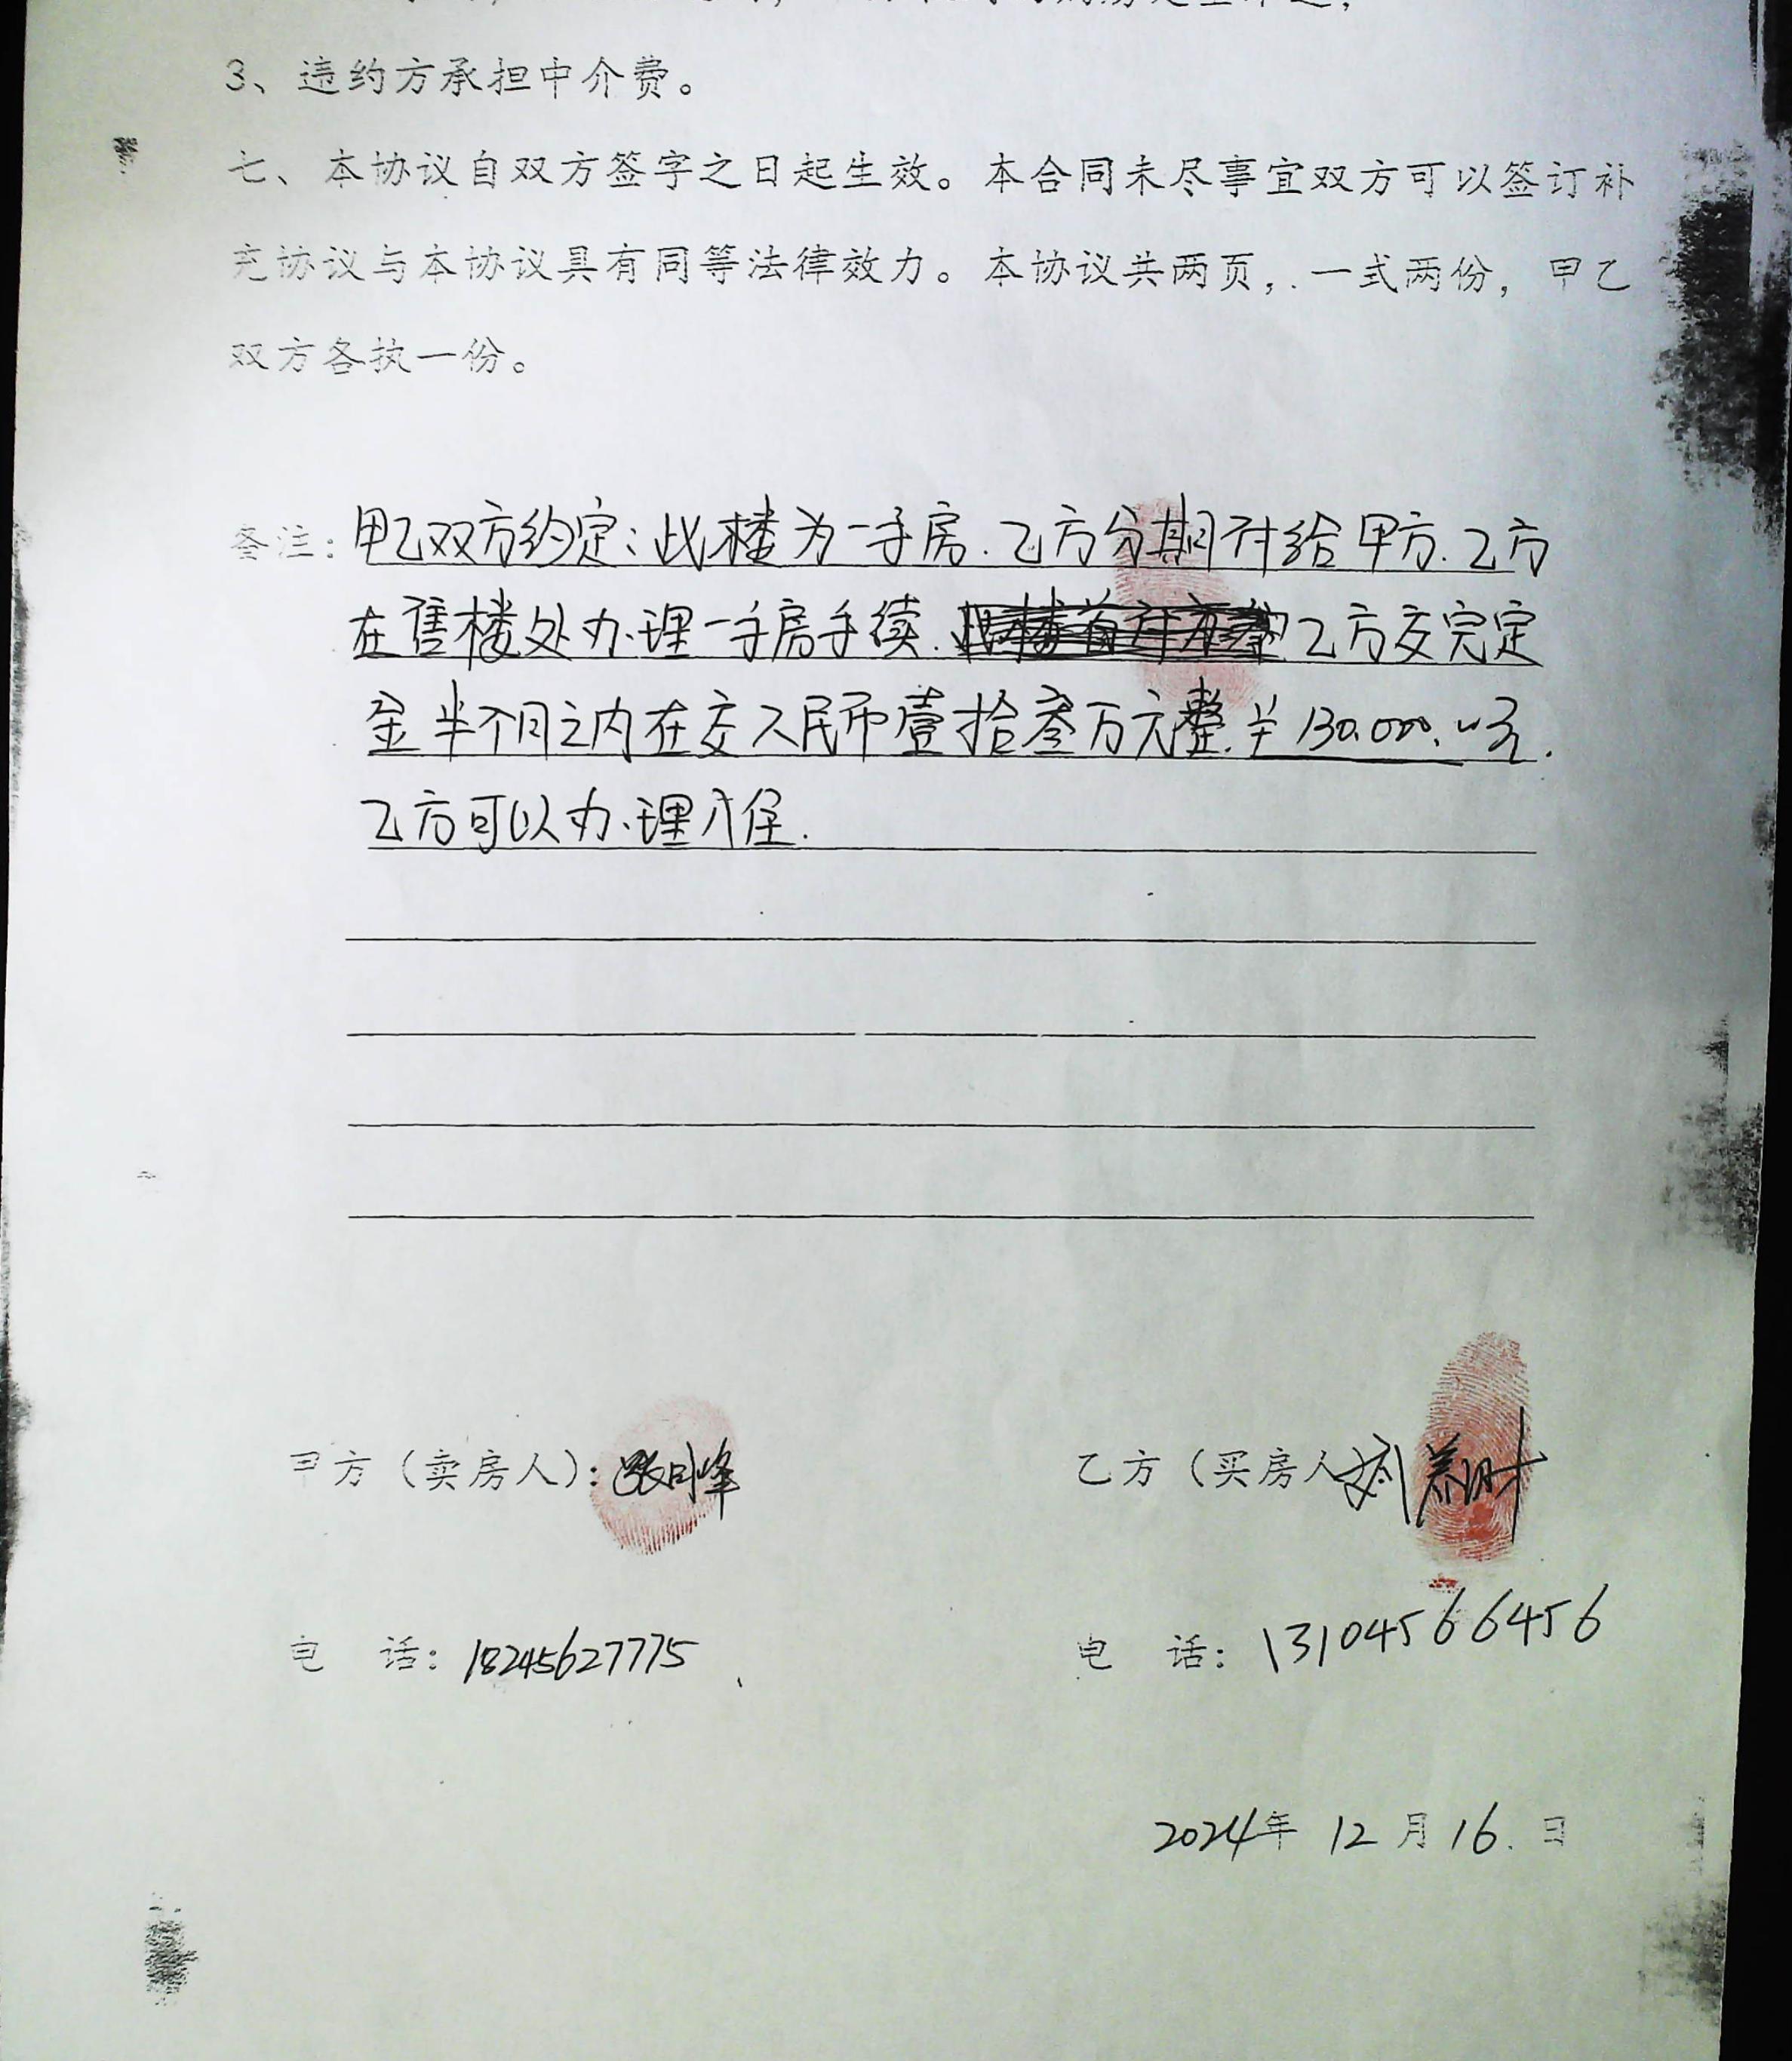 3、违约方承担中介费。
七、本协议自双方签字之日起生效。本合同未尽事宜双方可以签订补
充协议与本协议具有同等法律效力。本协议共两页，一式两份，甲乙
双方各执一份。
备注：甲乙双方约定：此楼为一手房.乙方分期付给甲方.乙方
在售楼处办理一手房手续.乙方交完定
金半个月之内在交人民币壹拾叁万元整.¥130.000.00元.
乙方可以办理入住.
甲方（卖房人）：
乙方（买房人
电 话：18245627775
电 话：13104566456
2024年 12月16.日